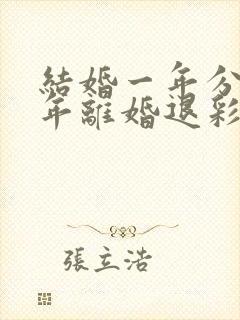 結婚一年分
年離婚退彩
張立浩